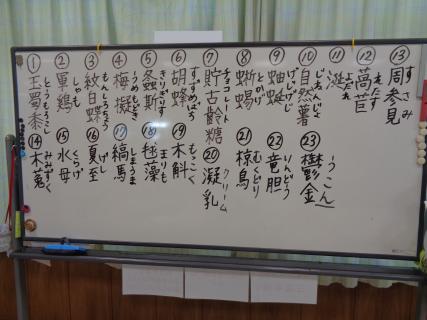 ① 玉蜀黍 とうもろこし
② 軍鶏 しゃも
③ 紋白蝶 もんしろちょう
④ 梅擬 うめもどき
⑤ 螽斯 きりぎりす
⑥ 胡蜂 すずめばち
⑦ 貯古齢糖 チョコレート
⑧ 蜥蜴 とかげ
⑨ 蚰蜒 げじげじ
⑩ 自然薯 じねんじょ
⑪ 涎 よだれ
⑫ 萵苣 れたす
⑬ 周参見 すさみ
⑭ 木菟 みみずく
⑮ 水母 くらげ
⑯ 夏至 げし
⑰ 縞馬 しまうま
⑱ 毬藻 まりも
⑲ 木斛 もっこく
⑳ 凝乳 クリーム
㉑ 椋鳥 むくどり
㉒ 竜胆 りんどう
㉓ 鬱金 うこん